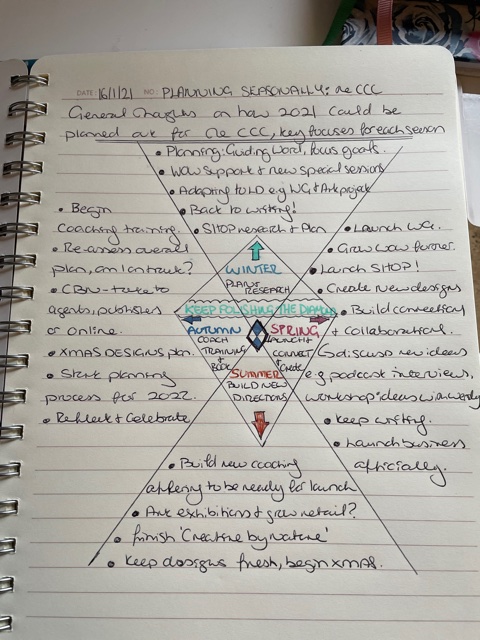 DATE: 16/1/21 NO: PLANNING SEASONALLY: The CCC
General thoughts on how 2021 could be
planned out for The CCC, key focuses for each season
• Planning: Guiding Word, focus goals.
• WOW support + new special sessions
• Adapting to LD e.g WG + Art project
• Back to writing!
• SHOP research + Plan
• Begin
coaching training.
• Re-assess overall
plan, am I on track?
• CBN - take to
agents, publishers
or online.
• XMAS DESIGNS plan.
• Start planning
process for 2022.
• Reflect + Celebrate
WINTER
PLAN +
RESEARCH
KEEP POLISHING THE DIAMOND
AUTUMN
COACH
TRAINING
+
BOOK
SPRING
LAUNCH +
CONNECT
+
CREATE
SUMMER
BUILD NEW
DIRECTIONS
• Launch WG.
• Grow WOW further.
• Launch SHOP!
• Create New designs
• Build connections
+ collaborations.
Go discuss new ideas
e.g podcast interviews,
workshop ideas with
• Keep writing.
• Launch business
officially.
• Build new coaching
offering to be ready for launch
• Art exhibitions + grow retail?
• finish 'Creative by nature'
• Keep designs fresh, begin XMAS.